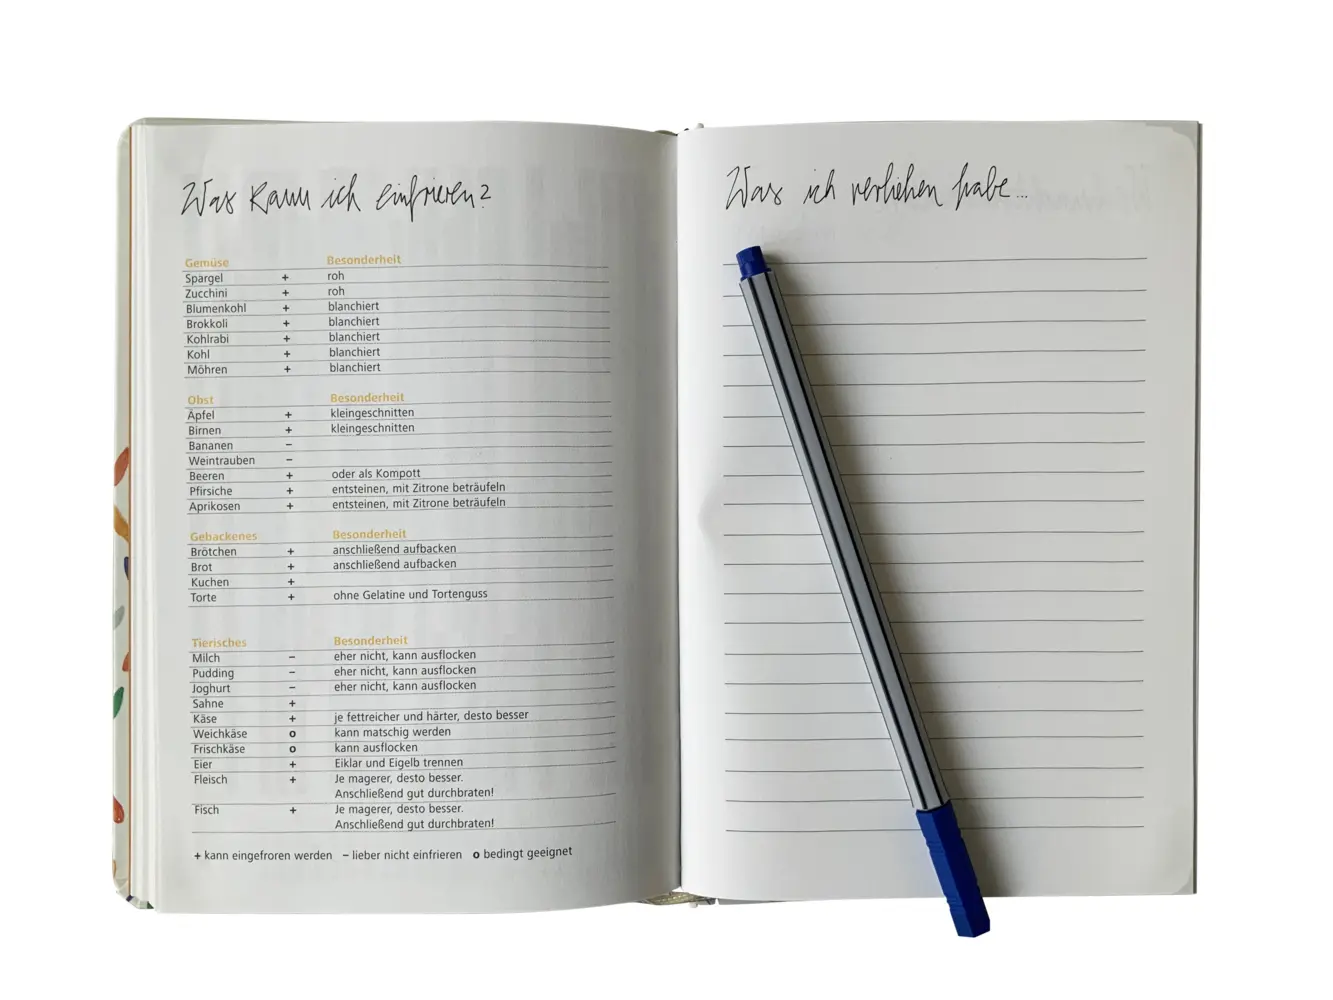 Was kann ich einfrieren?
Gemüse Besonderheit
Spargel + roh
Zucchini + roh
Blumenkohl + blanchiert
Brokkoli + blanchiert
Kohlrabi + blanchiert
Kohl + blanchiert
Möhren + blanchiert
Obst Besonderheit
Äpfel + kleingeschnitten
Birnen + kleingeschnitten
Bananen –
Weintrauben –
Beeren + oder als Kompott
Pfirsiche + entsteinen, mit Zitrone beträufeln
Aprikosen + entsteinen, mit Zitrone beträufeln
Gebackenes Besonderheit
Brötchen + anschließend aufbacken
Brot + anschließend aufbacken
Kuchen +
Torte + ohne Gelatine und Tortenguss
Tierisches Besonderheit
Milch – eher nicht, kann ausflocken
Pudding – eher nicht, kann ausflocken
Joghurt – eher nicht, kann ausflocken
Sahne +
Käse + je fettreicher und härter, desto besser
Weichkäse o kann matschig werden
Frischkäse o kann ausflocken
Eier + Eiklar und Eigelb trennen
Fleisch + Je magerer, desto besser.
Anschließend gut durchbraten!
Fisch + Je magerer, desto besser.
Anschließend gut durchbraten!
+ kann eingefroren werden – lieber nicht einfrieren o bedingt geeignet
Was ich verliehen habe...